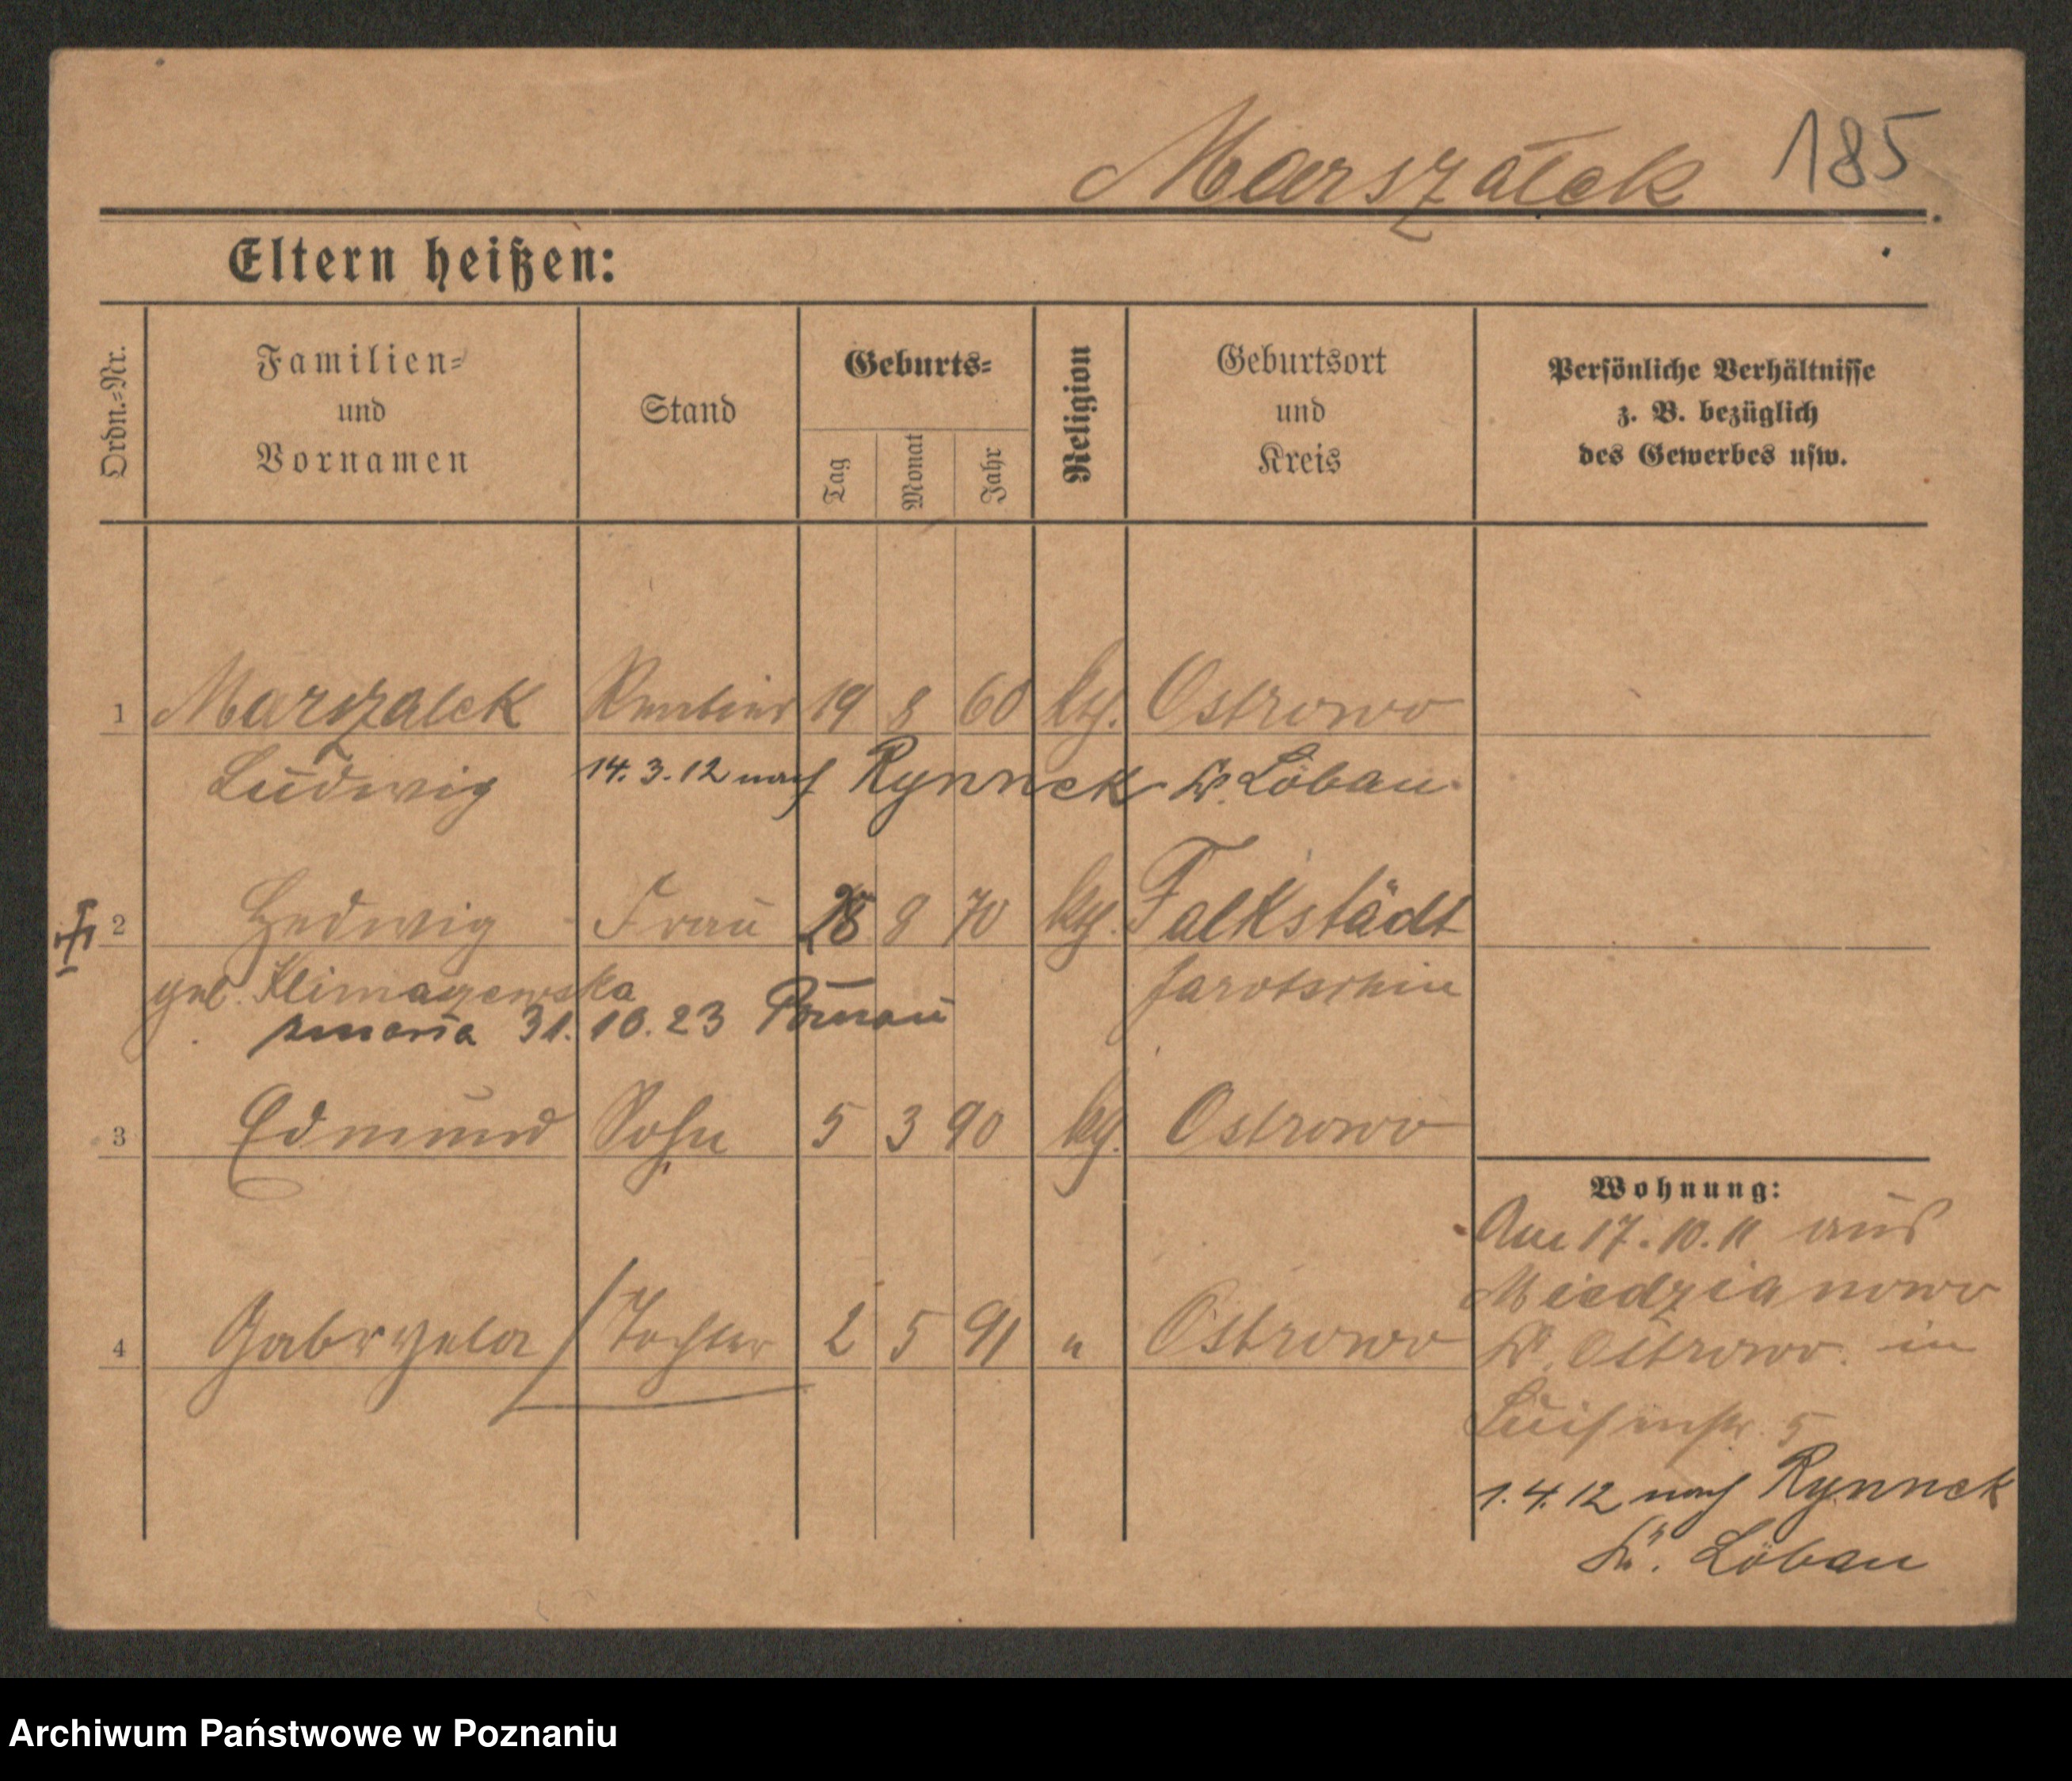 Marszałek 185
Eltern heißen:
Ordn.-Nr. Familien- und Vornamen Stand Geburts- Tag Monat Jahr Religion Geburtsort und Kreis Persönliche Verhältnisse z. B. bezüglich des Gewerbes usw.
1 Marszalek Rentier 19 8 60 kth. Ostrowo
Ludwig 14. 3. 12 nach Rynnek Kr. Löbau
2 Hedwig Frau 28 8 70 kth. Falkstädt
geb. Klimaszewska Jarotschin
zmarła 31. 10. 23 Poznań
3 Edmund Sohn 5 3 90 kth. Ostrowo
4 Gabryela Tochter 2 5 91 " Ostrowo
Wohnung:
Am 17. 10. 11 aus
Miedzianowo
Kr. Ostrowo in
Luisenstr. 5
1. 4. 12 nach Rynnek
Kr. Löbau
Archiwum Państwowe w Poznaniu